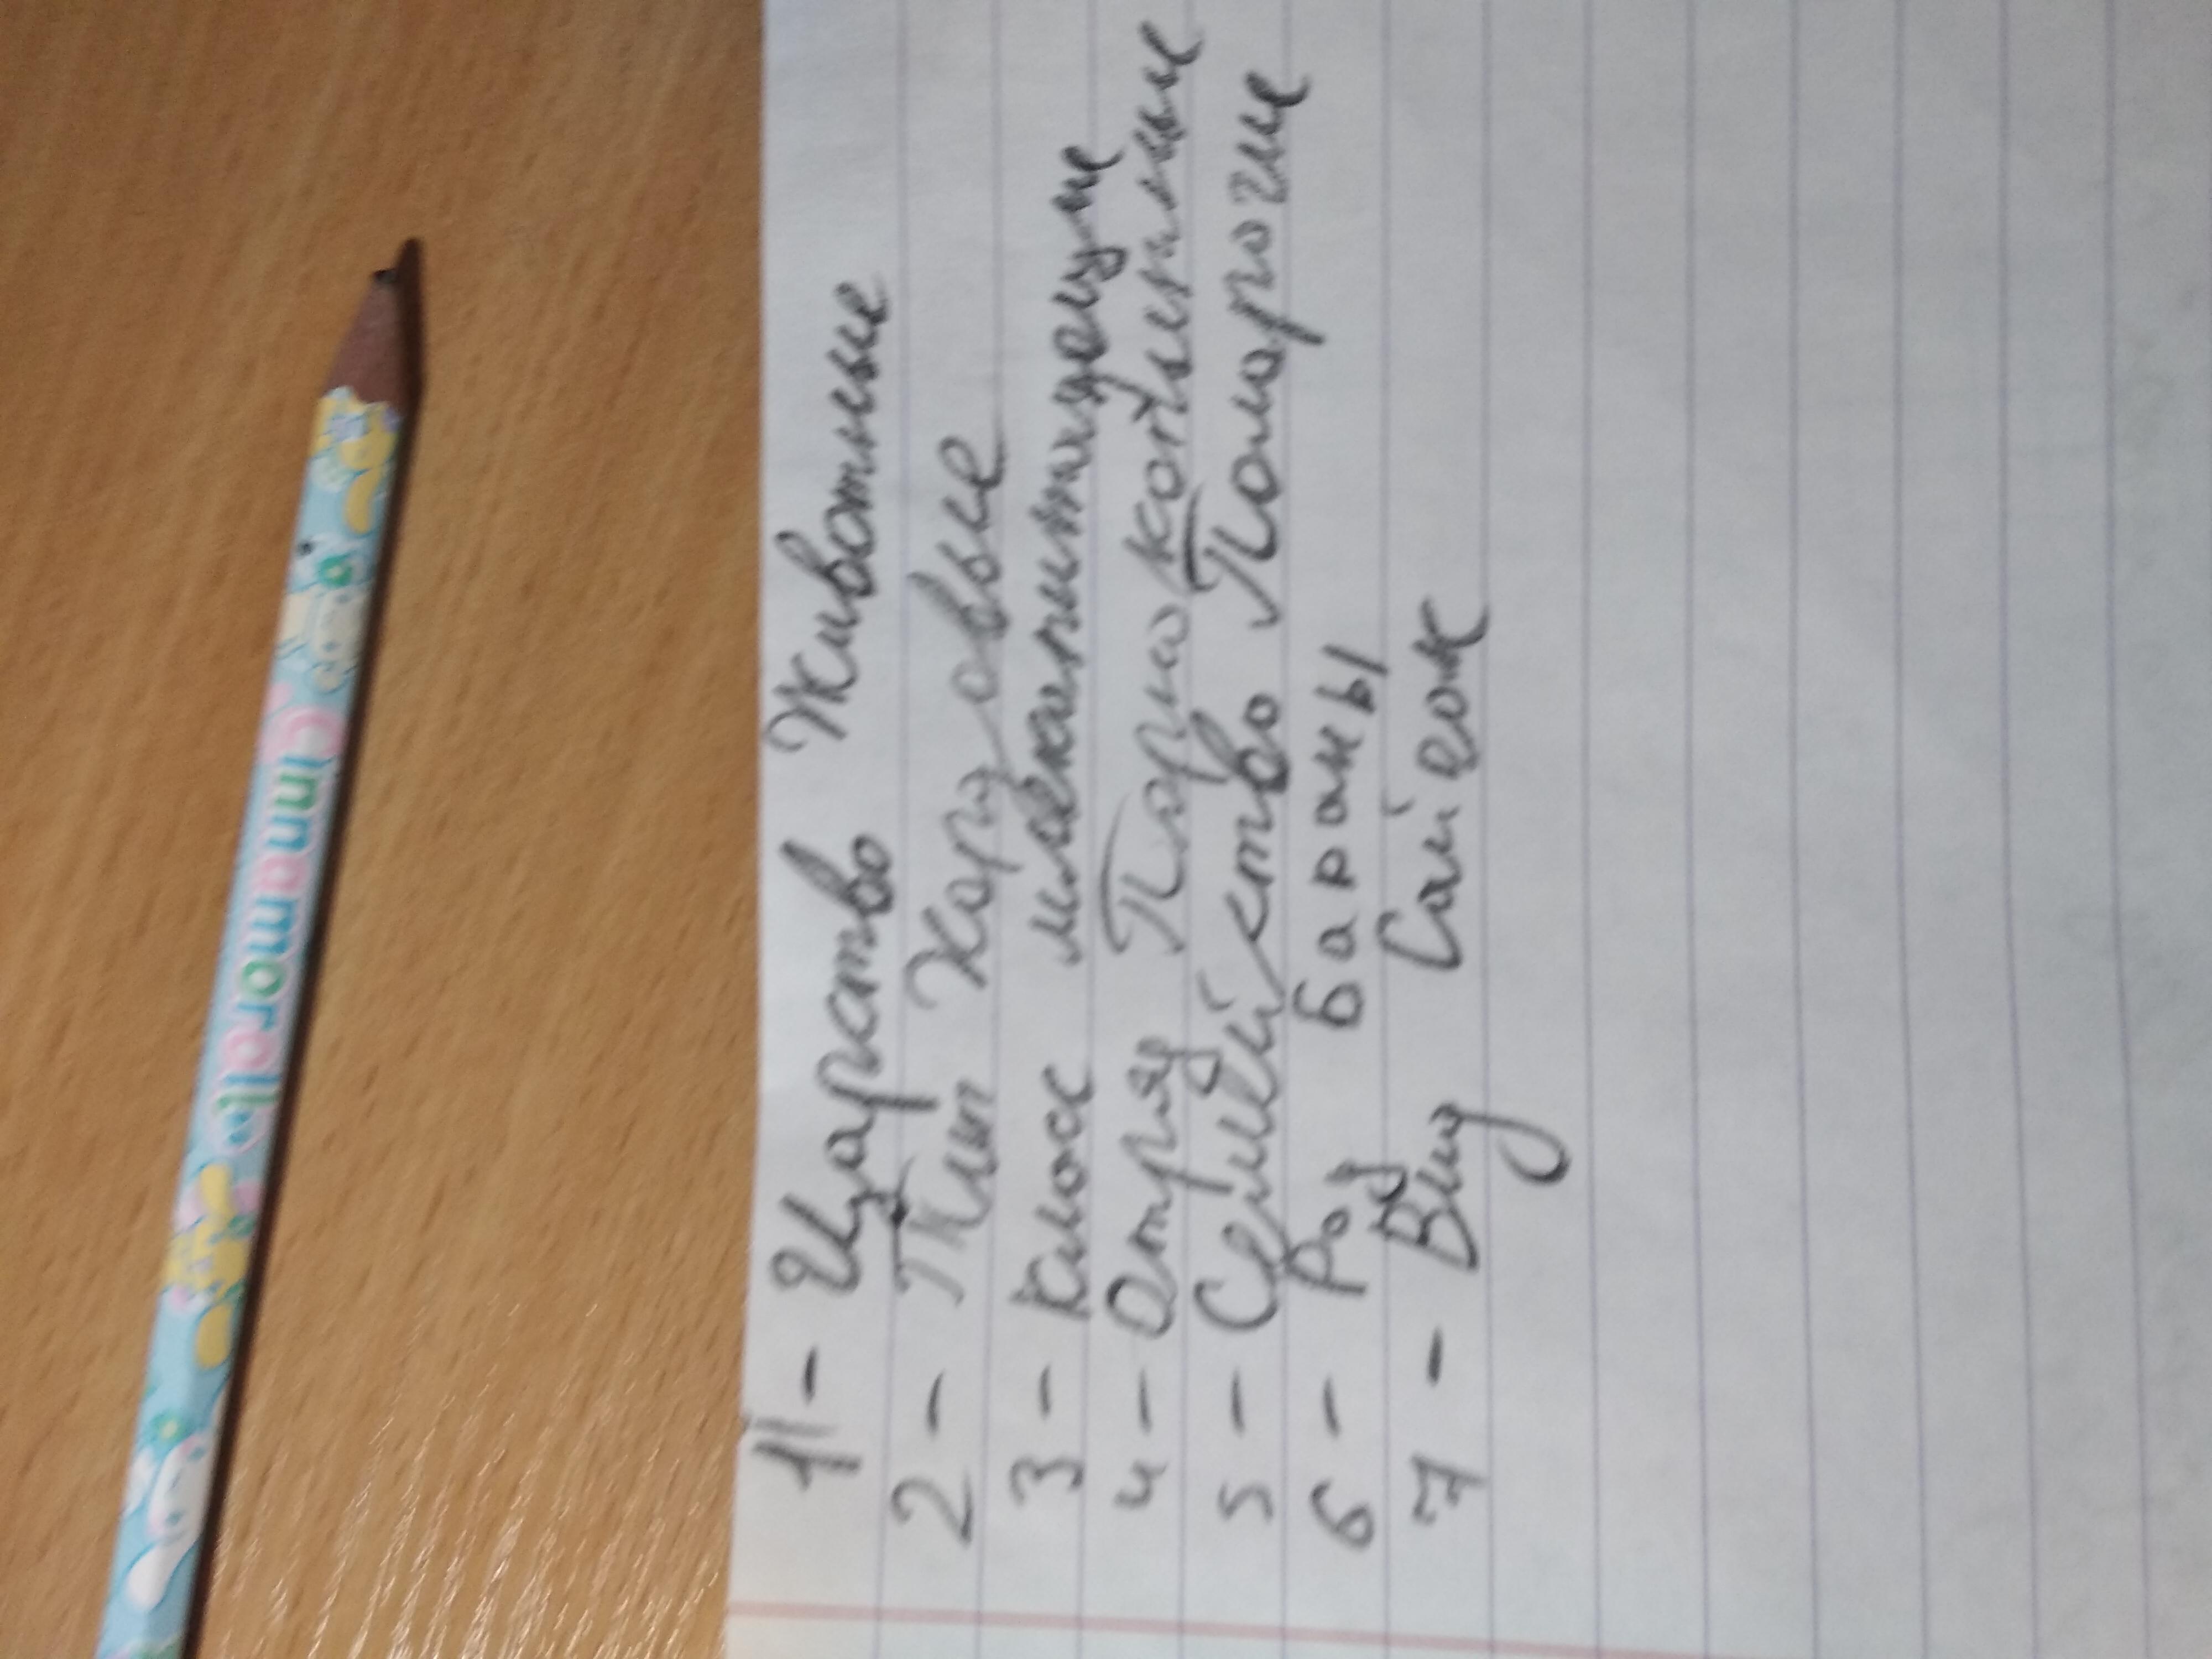 Cinnamoroll
1 - Царство Животные
2 - Тип Хордовые
3 - Класс млекопитающие
4 - Отряд Парнокопытные
5 - Семейство Полорогие
6 - Род Бараны
7 - Вид